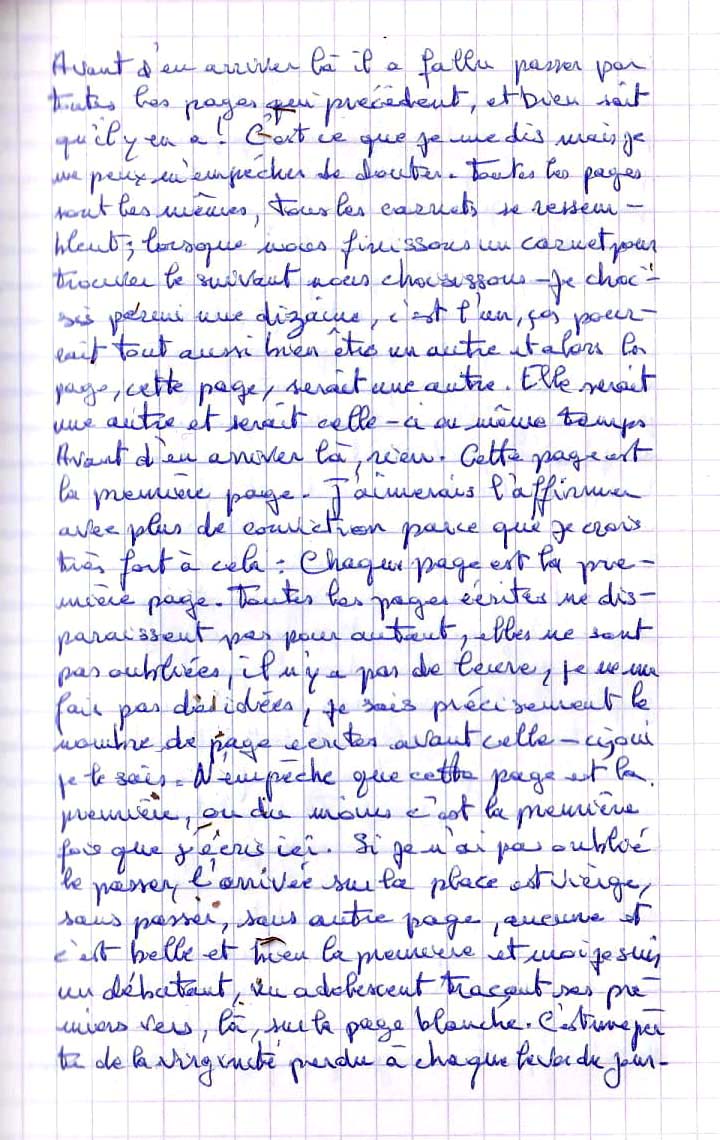 Avant d'en arriver là il a fallu passer par
toutes les pages qui précèdent, et Dieu sait
qu'il y en a ! C'est ce que je me dis mais je
ne peux m'empêcher de douter. Toutes les pages
sont les mêmes, tous les carnets se ressem-
blent ; lorsque nous finissons un carnet pour
trouver le suivant nous choisissons - je choi-
sis parmi une dizaine, c'est l'un, ça pour-
rait tout aussi bien être un autre et alors la
page, cette page, serait une autre. Elle serait
une autre et serait celle-ci en même temps
Avant d'en arriver là, rien. Cette page est
la première page. J'aimerais l'affirmer
avec plus de conviction parce que je crois
très fort à cela : Chaque page est la pre-
mière page. Toutes les pages écrites ne dis-
paraissent pas pour autant, elles ne sont
pas oubliées, il n'y a pas de leurre, je ne me
fais pas d'idées, je sais précisément le
nombre de page écrites avant celle-ci, oui
je le sais. N'empêche que cette page est la
première, ou du moins c'est la première
fois que j'écris ici. Si je n'ai pas oublié
le passé, l'arrivée sur la place est vierge,
sans passé, sans autre page, aucune et
c'est belle et bien la première et moi je suis
un débutant, un adolescent traçant ses pre-
miers vers, là, sur la page blanche. C'est une per
te de la virginité perdu à chaque levée du jour-